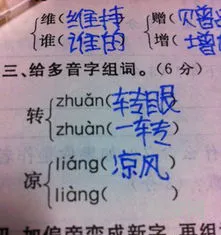 维(维持) 赠(赠
谁(谁的) 增(增
三、给多音字组词。(6 分)
转 zhuǎn(转眼)
zhuàn(一转)
凉 liáng(凉风)
liàng( )
加偏旁变成新字,再组